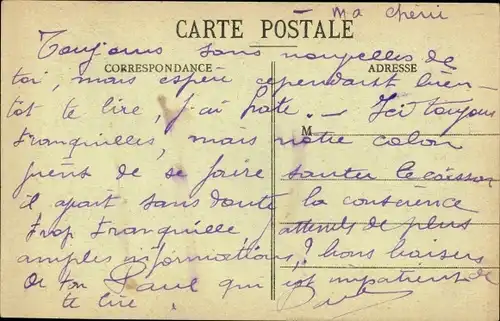 CARTE POSTALE
Ma chérie
CORRESPONDANCE
ADRESSE
M
Toujours sans nouvelles de
toi, mais espère cependant bien-
tôt te lire, j'ai hâte. — Ici toujours
tranquilles, mais notre colon
vient de se faire sauter le caisson
il avait sans doute la conscience
trop tranquille attends de plus
amples informations! bons baisers
de ton Paul qui est impatient de
te lire.